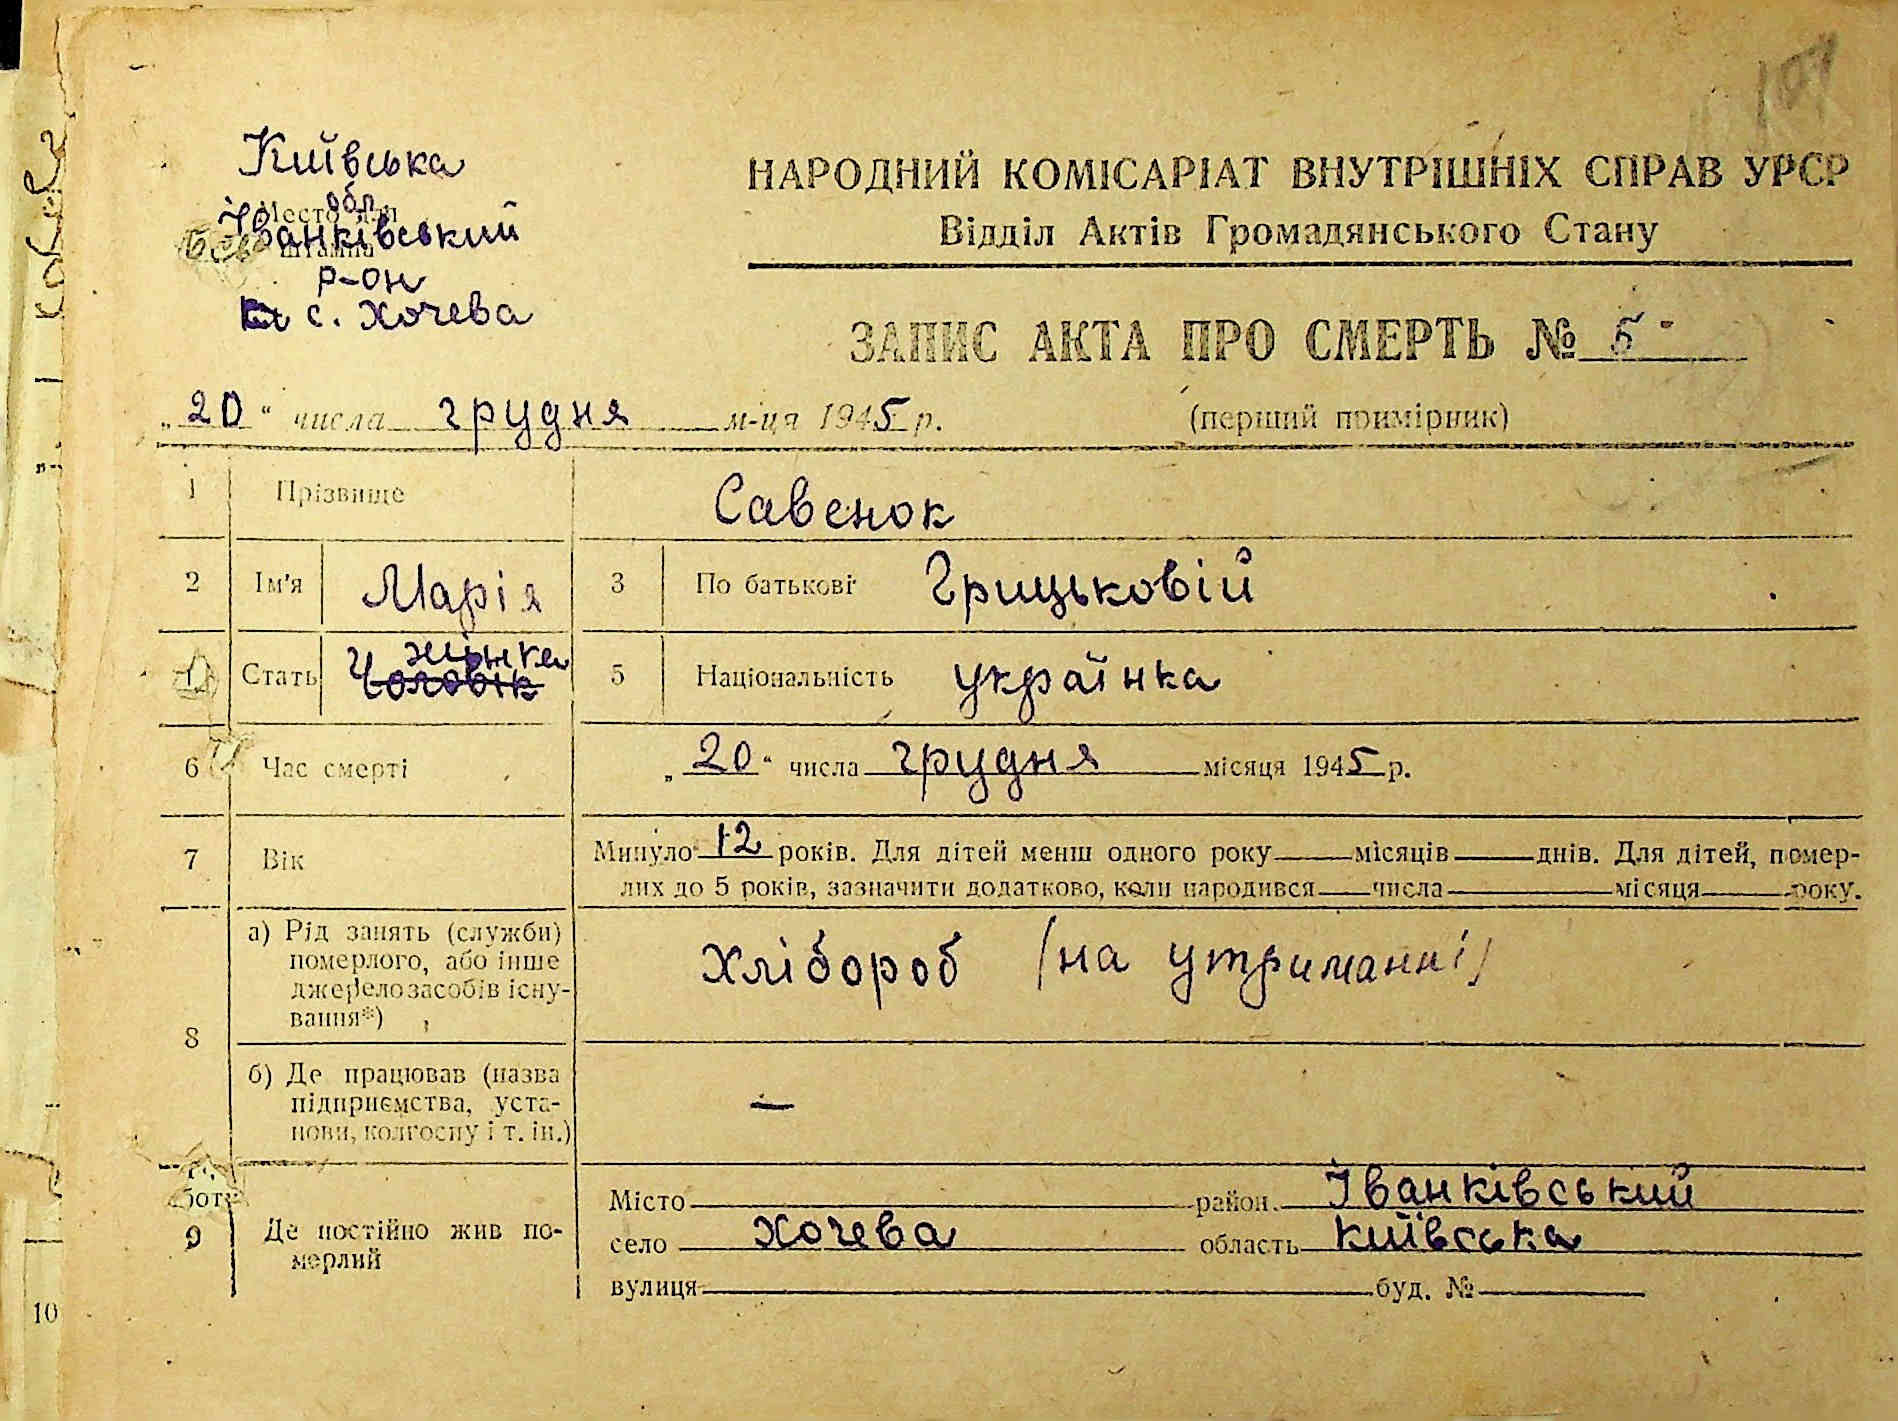 197
Київська
обл
Місто для
Іванківський
штампа
р-он
с. Хочева
НАРОДНИЙ КОМІСАРІАТ ВНУТРІШНІХ СПРАВ УРСР
Відділ Актів Громадянського Стану
ЗАПИС АКТА ПРО СМЕРТЬ № 5
„20" числа грудня м-ця 1945 р. (перший примірник)
1 Прізвище Савенок
2 Ім'я Марія 3 По батькові Грицьковій
жінка
Стать Чоловік 5 Національність українка
6 Час смерті „20" числа грудня місяця 1945 р.
7 Вік Минуло 12 років. Для дітей менш одного року місяців днів. Для дітей, помер-
лих до 5 років, зазначити додатково, коли народився числа місяця року.
8 а) Рід занять (служби)
померлого, або інше
джерело засобів існу-
вання*)
хлібороб (на утриманні)
б) Де працював (назва
підприємства, уста-
нови, колгоспу і т. ін.)
—
9 Де постійно жив по-
мерлий
Місто район Іванківський
село Хочева область Київська
вулиця буд. №
10